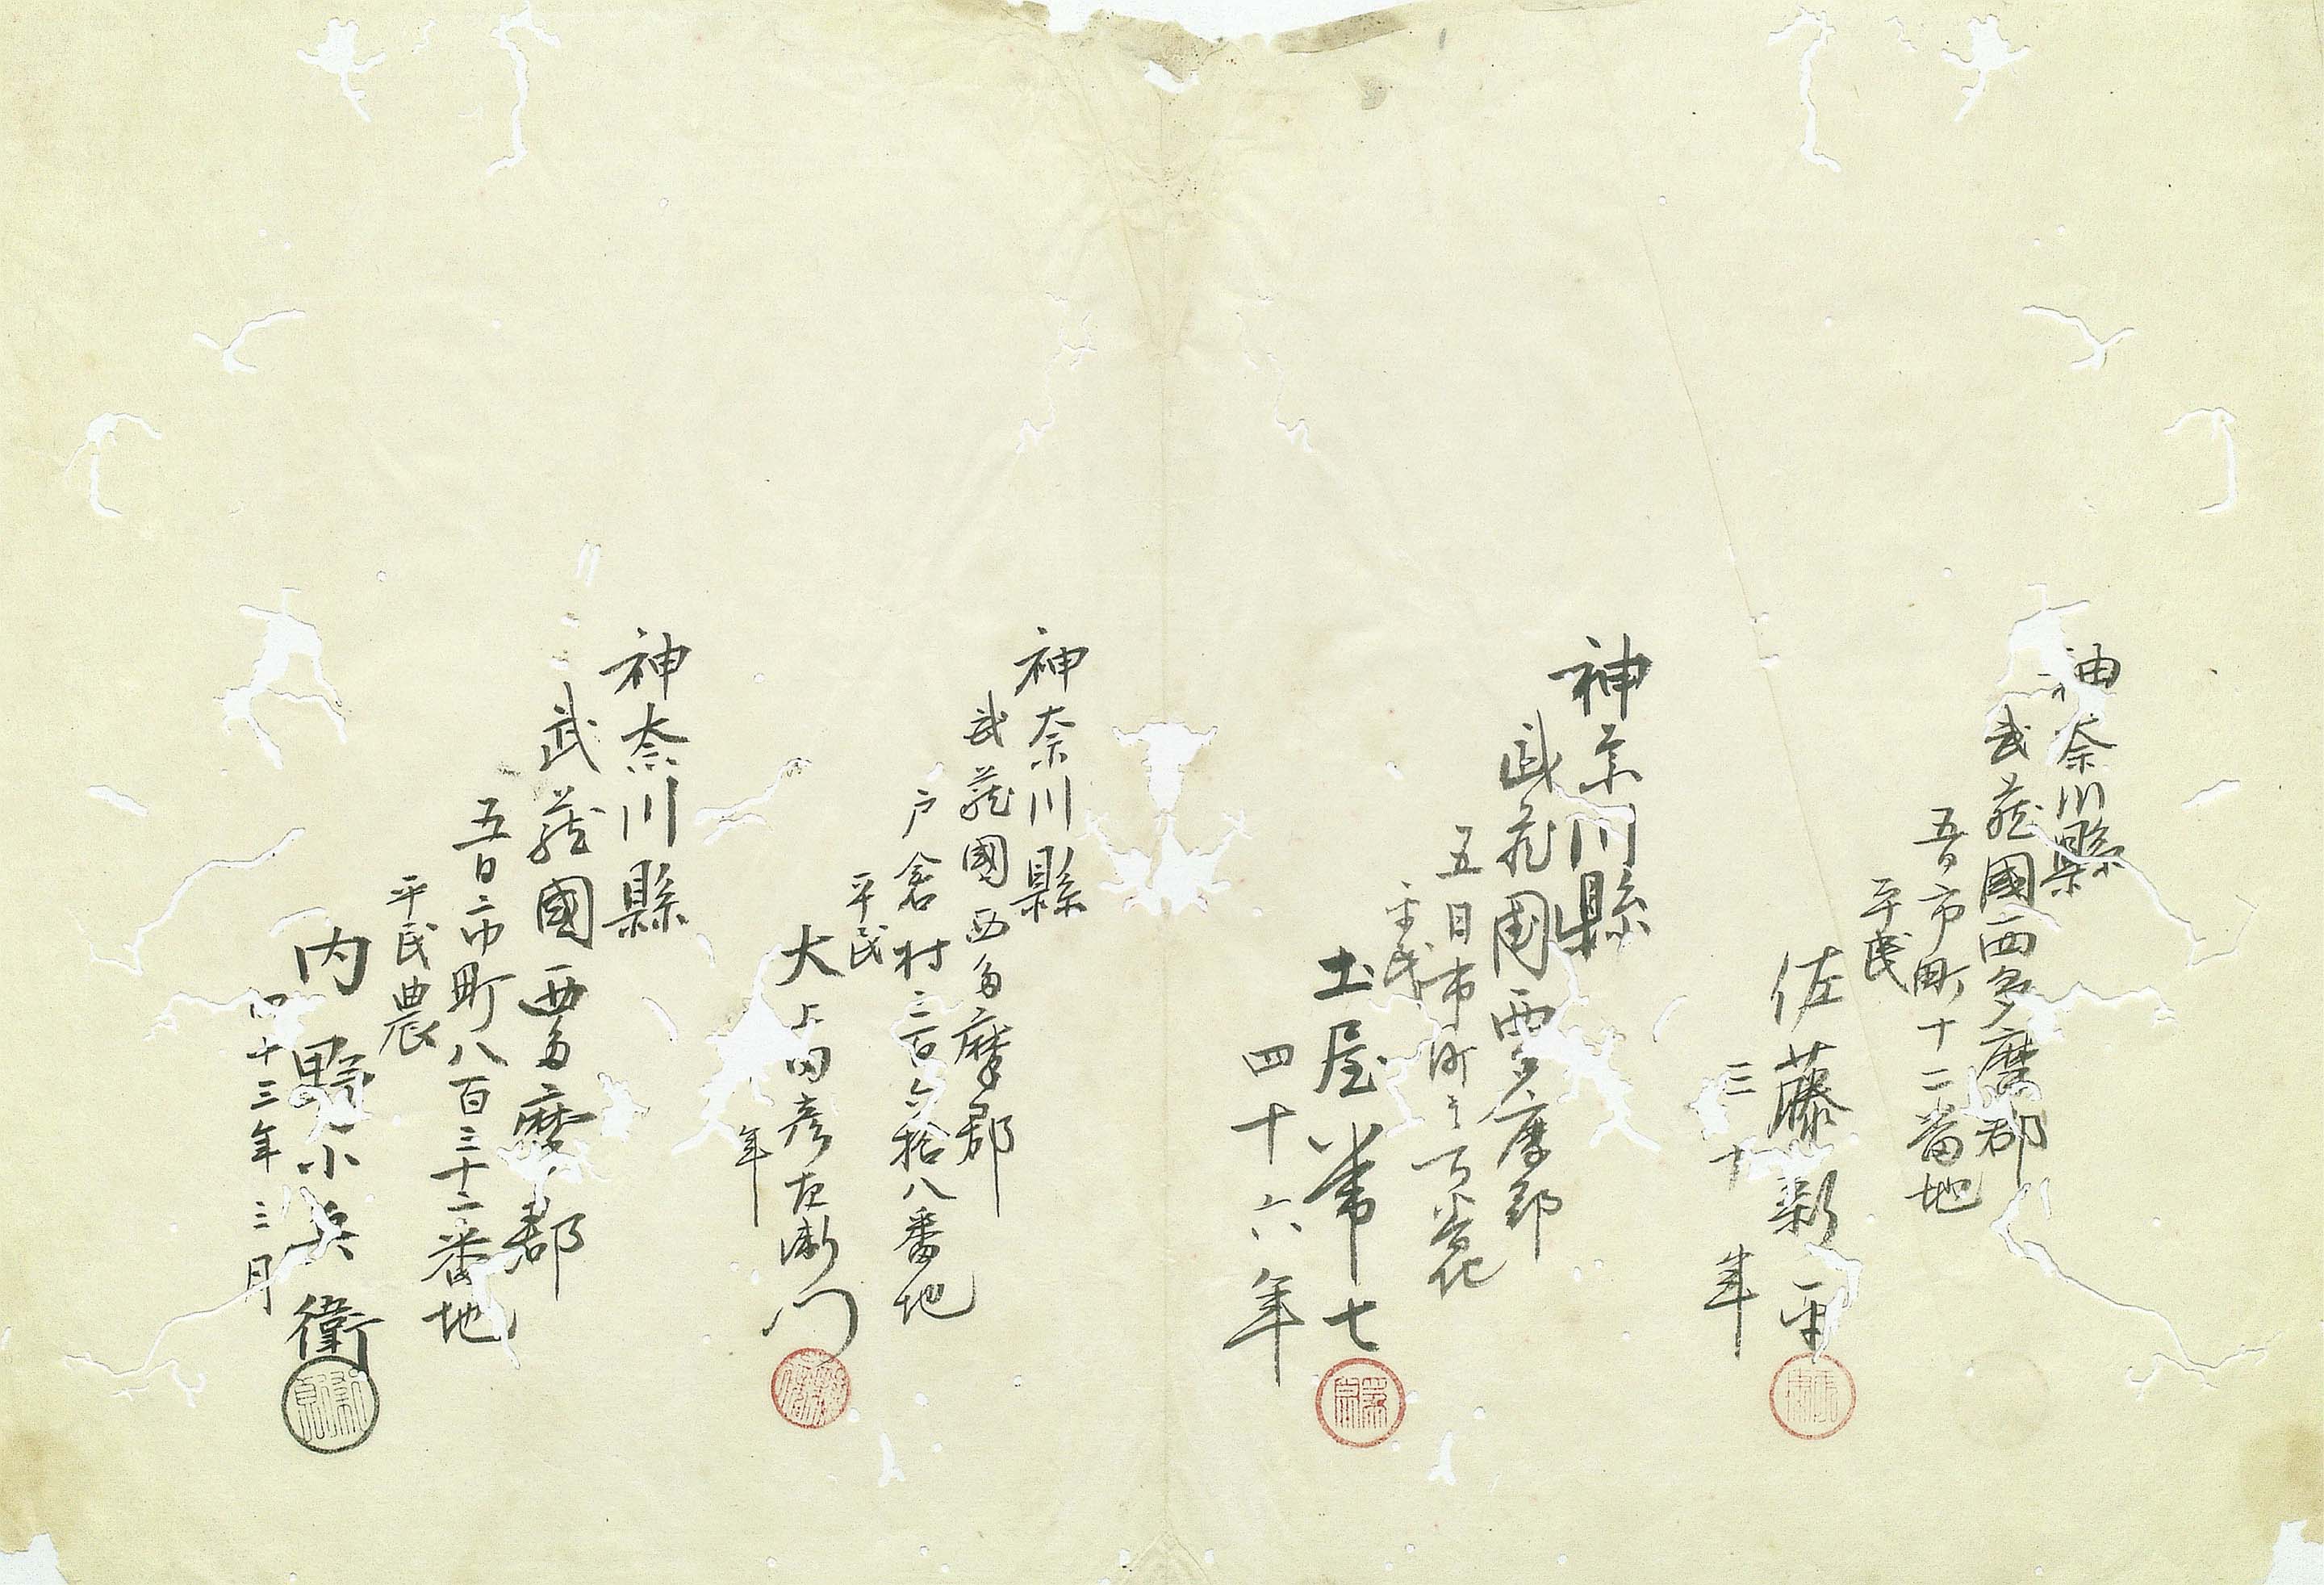 神奈川縣
武蔵國西多摩郡
五日市町十二番地
平民
佐藤新平
三十 年
神奈川縣
武蔵國西多摩郡
五日市町
平民
土屋常七
四十六年
神奈川縣
武蔵國西多摩郡
戸倉村二百六拾八番地
平民
大上田彦左衛門
年
神奈川縣
武蔵國西多摩郡
五日市町八百三十二番地
平民農
内野小兵衛
四十三年三月